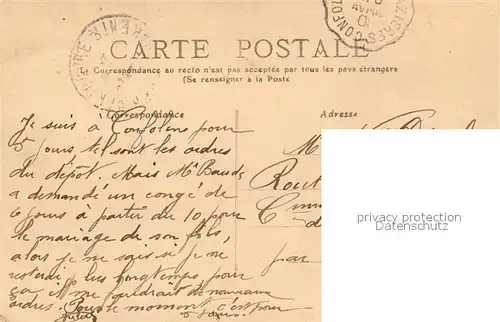 CARTE POSTALE
Correspondance au recto n'est pas acceptée par tous les pays étrangers
(Se renseigner à la Poste
Correspondance
Adresse
Je suis à Confolens pour
5 jours tel sont les ordres
du dépôt. Mais Mr
a demandé un congé de
6 jours à partir du 10 pour
le mariage de son fils,
alors je ne sais si je ne
resterai plus longtemps pour
ça il me faudrait de nouveaux
ordres. Pour le moment c'est pour
5 jours.
M
Rout
par
privacy protection
privacy protection